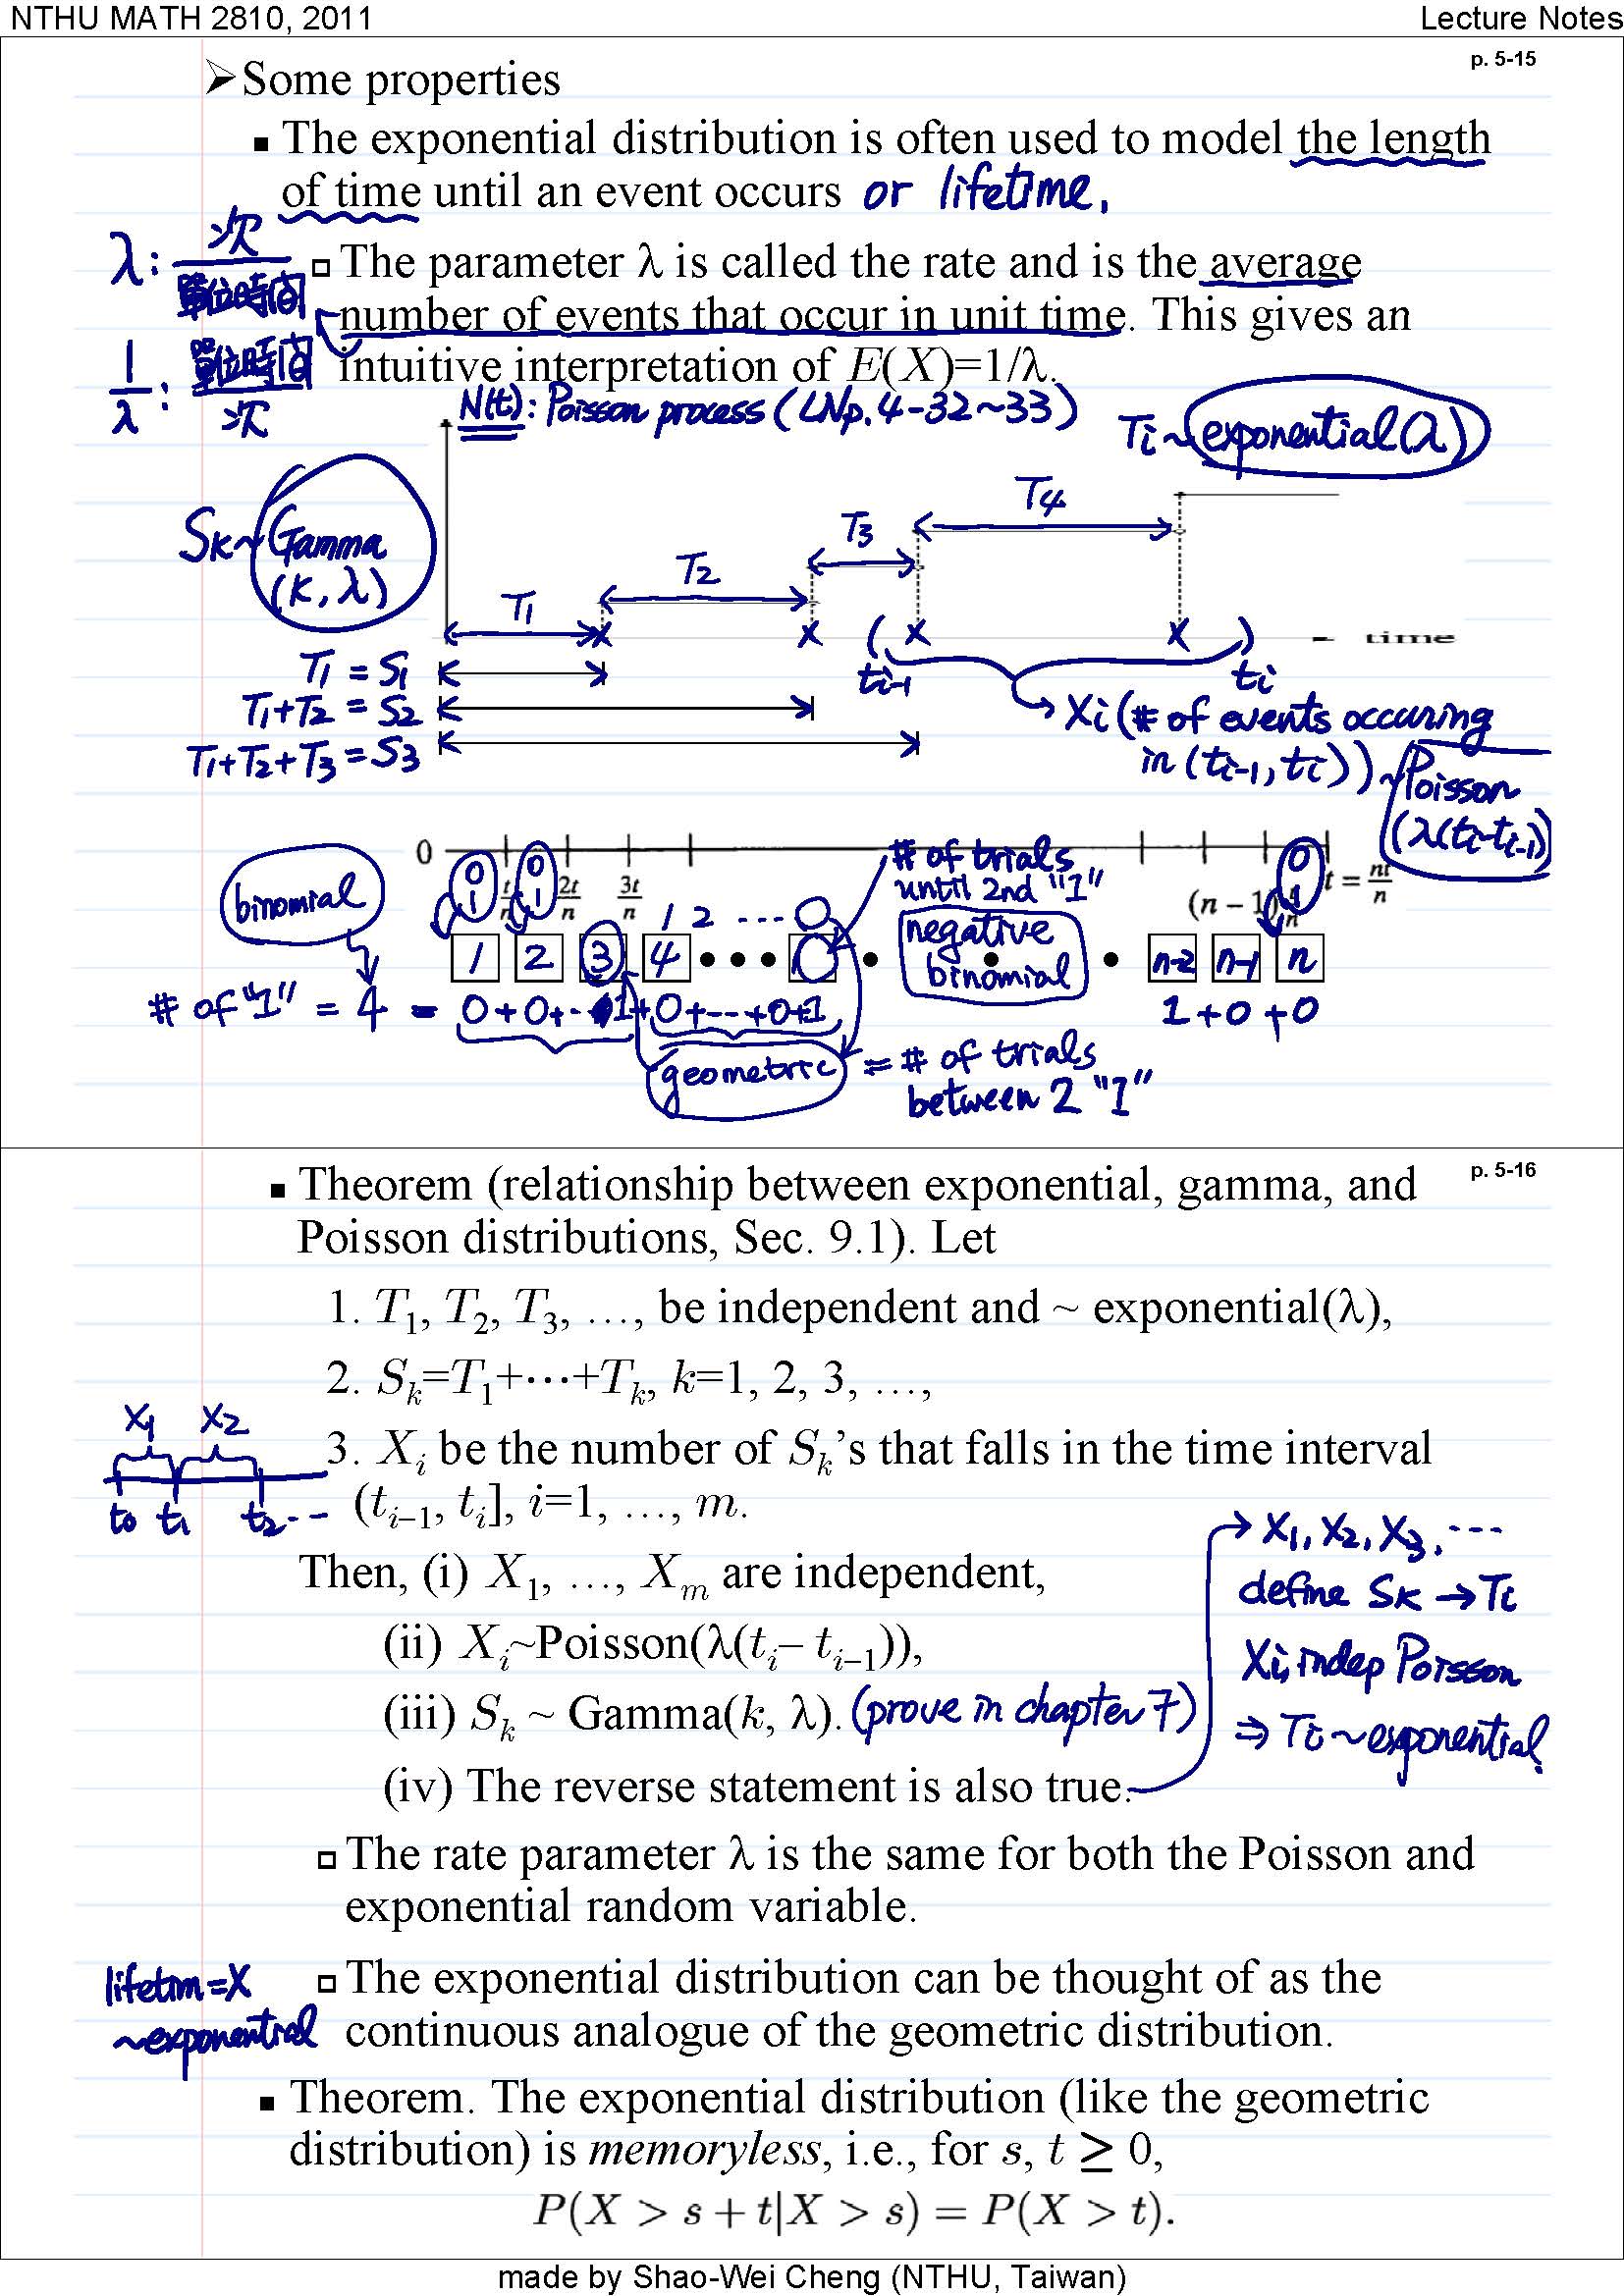 NTHU MATH 2810, 2011
Lecture Notes
p. 5-15
➢Some properties
▪ The exponential distribution is often used to model the length
of time until an event occurs or lifetime.
λ: 次
單位時間
▫ The parameter λ is called the rate and is the average
number of events that occur in unit time. This gives an
1/λ: 單位時間
次
intuitive interpretation of E(X)=1/λ.
N(t): Poisson process (LNp. 4-32~33)
Ti ~ exponential(λ)
Sk ~ Gamma
(k, λ)
T1
T2
T3
T4
time
T1 = S1
T1+T2 = S2
T1+T2+T3 = S3
ti-1
ti
Xi (# of events occuring
in (ti-1, ti)) ~ Poisson
(λ(ti-ti-1))
0
t/n
2t/n
3t/n
(n − 1)t/n
t = nt/n
0 1
0 1
0 1
binomial
1 2 ----
# of trials
until 2nd "1"
negative
binomial
1 2 3 4 • • • • • • n-2 n-1 n
# of "1" = 4 = 0+0+--+1+0+--+0+1 1+0+0
geometric = # of trials
between 2 "1"
p. 5-16
▪ Theorem (relationship between exponential, gamma, and
Poisson distributions, Sec. 9.1). Let
1. T1, T2, T3, …, be independent and ~ exponential(λ),
2. Sk=T1+⋯+Tk, k=1, 2, 3, …,
X1 X2
3. Xi be the number of Sk's that falls in the time interval
t0 t1 t2 --
(ti–1, ti], i=1, …, m.
Then, (i) X1, …, Xm are independent,
(ii) Xi~Poisson(λ(ti– ti–1)),
(iii) Sk ~ Gamma(k, λ). (prove in chapter 7)
(iv) The reverse statement is also true.
X1, X2, X3, ---
define Sk → Ti
Xi, indep Poisson
⇒ Ti ~ exponential
▫ The rate parameter λ is the same for both the Poisson and
exponential random variable.
lifetim = X
~exponential
▫ The exponential distribution can be thought of as the
continuous analogue of the geometric distribution.
▪ Theorem. The exponential distribution (like the geometric
distribution) is memoryless, i.e., for s, t ≥ 0,
P(X > s + t|X > s) = P(X > t).
made by Shao-Wei Cheng (NTHU, Taiwan)